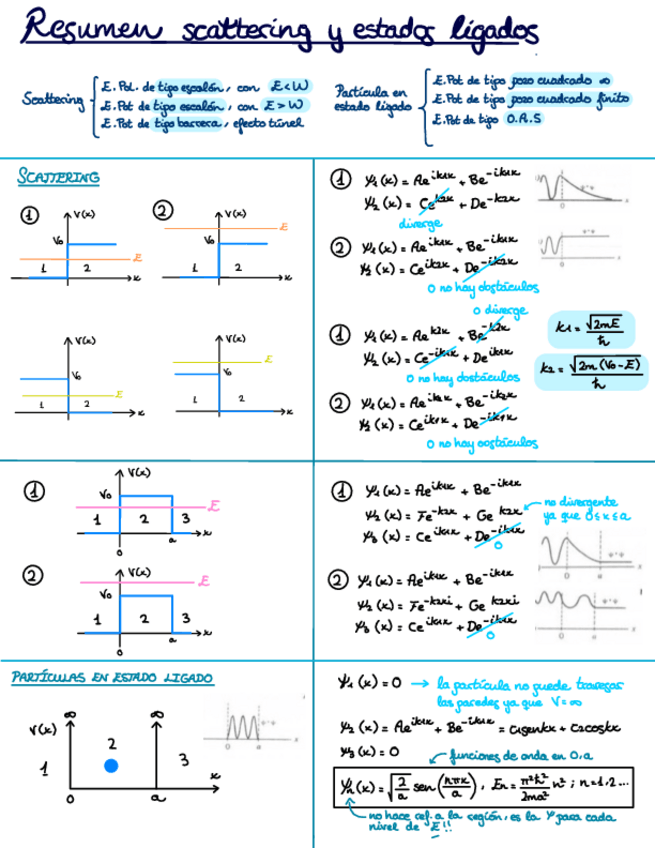 Resumen scattering y estados ligados
Scattering
E. Pot. de tipo escalón, con E<W
E. Pot de tipo escalón, con E>W
E. Pot de tipo barrera, efecto túnel
Partícula en
estado ligado
E. Pot de tipo pozo cuadrado ∞
E. Pot de tipo pozo cuadrado finito
E. Pot de tipo O.A.S
SCATTERING
① V(x) V₀ E 1 2 x
② V(x) E V₀ 1 2 x
V(x) V₀ E 1 2 x
V(x) E V₀ 1 2 x
① Ψ₁(x) = Ae^ik₁x + Be^-ik₁x
Ψ₂(x) = Ce^k₂x + De^-k₂x
diverge
0
② Ψ₁(x) = Ae^ik₁x + Be^-ik₁x
Ψ₂(x) = Ce^ik₂x + De^-ik₂x
0 no hay obstáculos
0
0 diverge
① Ψ₁(x) = Ae^k₂x + Be^-k₂x
Ψ₂(x) = Ce^-ik₁x + De^ik₁x
0 no hay obstáculos
k₁ = √2mE / ħ
k₂ = √2m(V₀-E) / ħ
② Ψ₁(x) = Ae^ik₂x + Be^-ik₂x
Ψ₂(x) = Ce^ik₁x + De^-ik₁x
0 no hay obstáculos
① V(x) V₀ E 1 2 3 0 a x
② V(x) E V₀ 1 2 3 0 a x
① Ψ₁(x) = Ae^ik₁x + Be^-ik₁x
Ψ₂(x) = Fe^-k₂x + Ge^k₂x
no divergente
ya que 0≤x≤a
Ψ₃(x) = Ce^ik₁x + De^-ik₁x
0
0 a x
② Ψ₁(x) = Ae^ik₁x + Be^-ik₁x
Ψ₂(x) = Fe^-k₂xi + Ge^k₂xi
Ψ₃(x) = Ce^ik₁x + De^-ik₁x
0
0 a
PARTÍCULAS EN ESTADO LIGADO
V(x) ∞ ∞
1 2 3
0 a x
0 a
Ψ₁(x) = 0 → la partícula no puede travesar
las paredes ya que V=∞
Ψ₂(x) = Ae^ik₁x + Be^-ik₁x = c₁senkx + c₂coskx
Ψ₃(x) = 0
funciones de onda en 0,a
Ψₙ(x) = √2/a sen(nπx/a), Eₙ = π²ħ²/2ma² n² ; n=1,2...
no hace ref. a la región, es la Ψ para cada
nivel de E!!